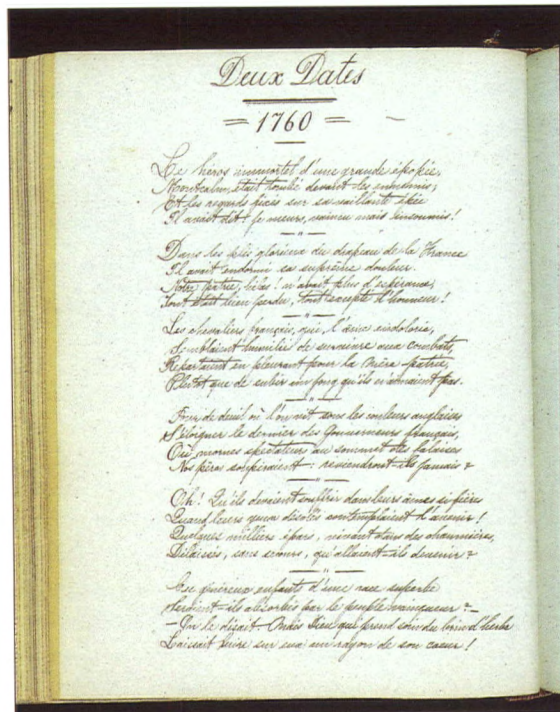 Deux Dates
= 1760 =
Le héros immortel d'une grande épopée,
Montcalm, était tombé devant les ennemis;
Et les regards fixés sur sa vaillante épée
Il avait dit: je meurs, vaincu mais insoumis!
Dans les plis glorieux du drapeau de la France
Il avait endormi sa suprême douleur.
Notre patrie, hélas! n'avait plus d'espérance;
Tout était bien perdu, tout excepté l'honneur!
Les chevaliers français, qui, l'âme endolorie,
Semblaient humiliés de survivre aux combats,
Repartaient en pleurant pour la mère-patrie,
Plutôt que de subir un joug qu'ils n'aimaient pas.
Jour de deuil où l'on vit sous les couleurs anglaises
S'éloigner le dernier des Gouverneurs français,
Où, mornes spectateurs au sommet des falaises
Nos pères soupiraient: reviendront-ils jamais?
Oh! Qu'ils devaient souffrir dans leurs âmes si fières
Quand leurs yeux désolés contemplaient l'avenir!
Quelques milliers épars, vivant dans des chaumières,
Délaissés, sans secours, qu'allaient-ils devenir?
Ces généreux enfants d'une race superbe
Seraient-ils absorbés par le peuple vainqueur?—
— On le disait. Mais Dieu qui prend soin du brin d'herbe
Laissait luire sur eux un rayon de son cœur!